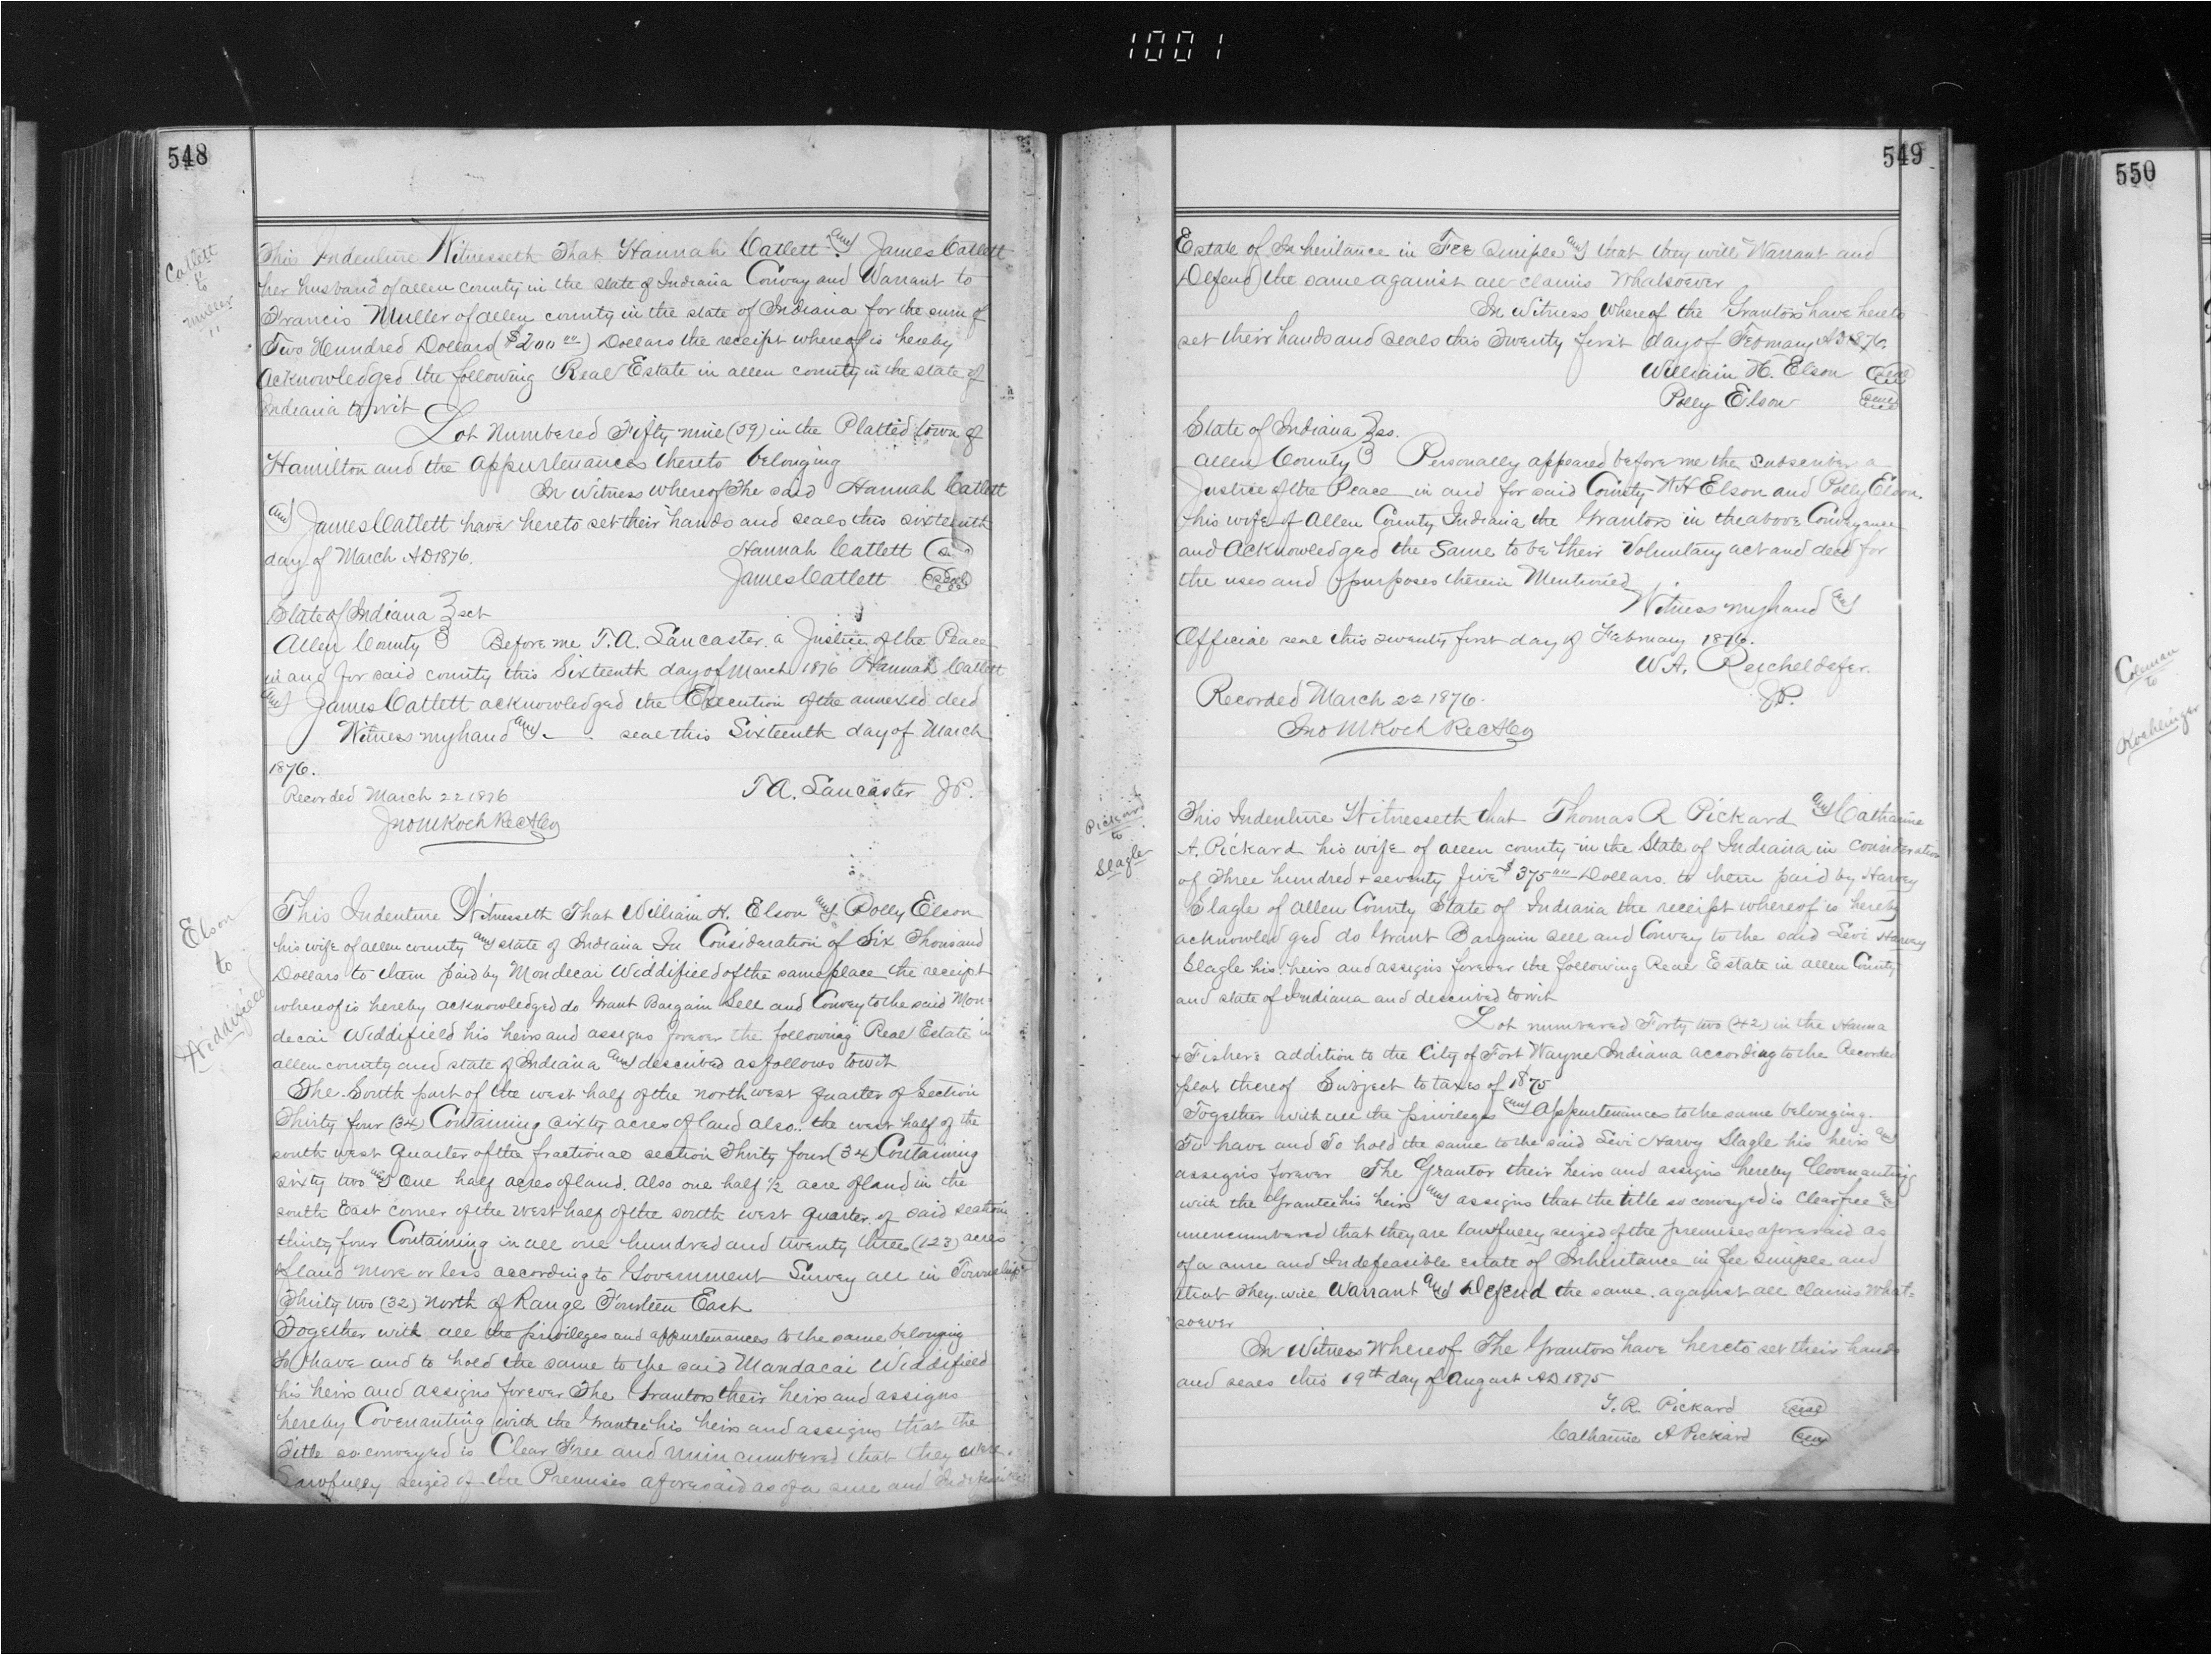 1001
548
Catlett
to
Muller
This Indenture Witnesseth That Hannah Catlett and James Catlett
her husband of allen county in the state of Indiana Convey and Warrant to
Francis Muller of allen county in the state of Indiana for the sum of
Two Hundred Dollars ($200 00) Dollars the receipt whereof is hereby
Acknowledged the following Real Estate in allen county in the state of
Indiana to wit
Lot Numbered Fifty nine (59) in the Platted town of
Hamilton and the appurtenances thereto belonging
In Witness whereof The said Hannah Catlett
and James Catlett have hereto set their hands and seals this sixteenth
day of March AD 1876. Hannah Catlett Seal
James Catlett Seal
State of Indiana } sct
Allen County } Before me T. A. Lancaster. a Justice of the Peace
in and for said county this Sixteenth day of March 1876 Hannah Catlett
and James Catlett acknowledged the Execution of the annexed deed
Witness my hand and — seal this Sixteenth day of March
1876.
T A. Lancaster J.P.
Recorded March 22 1876
Jno M Koch Rec A Co
Elson
to
Widdifield
This Indenture Witnesseth That William H. Elson and Polly Elson
his wife of allen county and state of Indiana In Consideration of Six Thousand
Dollars to them paid by Mondecai Widdifield of the same place the receipt
whereof is hereby acknowledged do Grant Bargain Sell and Convey to the said Mon
decai Widdifield his heirs and assigns forever the following Real Estate in
allen county and state of Indiana and described as follows to wit
The South part of the west half of the north west quarter of Section
Thirty four (34) Containing sixty acres of land also.. the west half of the
south west Quarter of the fractional section Thirty four (34) Containing
sixty two and One half acres of land. Also one half ½ acre of land in the
south East corner of the west half of the south west quarter of said section
thirty four Containing in all one hundred and twenty three (123) acres
of land more or less according to Government Survey all in Township
Thirty two (32) North of Range Fourteen East
Together with all the privileges and appurtenances to the same belonging
To have and to hold the same to the said Mandacai Widdifield
his heirs and assigns forever The Grantors their heirs and assigns
hereby Covenanting with the Grantee his heirs and assigns that the
Title so conveyed is Clear Free and unincumbered that they were
Lawfully seized of the Premises aforesaid as of a sure and Indefeasible
549
Estate of Inheritance in Fee Simple and that they will Warrant and
Defend the same against all claims Whatsoever
In Witness Whereof the Grantors have hereto
set their hands and seals this Twenty first day of February AD 1876.
William H. Elson Seal
Polly Elson Seal
State of Indiana } ss.
Allen County } Personally appeared before me the subscriber a
Justice of the Peace in and for said County W H Elson and Polly Elson.
his wife of Allen County Indiana the Grantors in the above Conveyance
and Acknowledged the Same to be their Voluntary act and deed for
the uses and purposes therein Mentioned
Witness my hand and
Official seal this twenty first day of February 1876.
W. A. Reicheldefer.
J.P.
Recorded March 22 1876.
Jno M Koch Rec A Co
Pickard
to
Slagle
This Indenture Witnesseth that Thomas R Pickard and Catharine
A. Pickard his wife of allen county in the State of Indiana in consideration
of Three hundred + seventy five $375 00 Dollars to them paid by Harvey
Slagle of allen County State of Indiana the receipt whereof is hereby
acknowledged do Grant Bargain sell and Convey to the said Levi Harvey
Slagle his heirs and assigns forever the following Real Estate in allen County
and state of Indiana and described to wit
Lot numbered Forty two (42) in the Hanna
+ Fishers addition to the City of Fort Wayne Indiana according to the Recorded
plat thereof Subject to taxes of 1875
Together with all the privileges and Appurtenances to the same belonging.
To have and To hold the same to the said Levi Harvy Slagle his heirs and
assigns forever The Grantor their heirs and assigns hereby Covenanting
with the Grantee his heirs and assigns that the title so conveyed is Clear free and
unencumbered that they are lawfully seized of the premises aforesaid as
of a sure and Indefeasible estate of Inheritance in fee simple and
that They will Warrant and Defend the same against all claims what=
soever
In Witness Whereof The Grantors have hereto set their hands
and seals this 19th day of August AD 1875
T. R. Pickard Seal
Catharine A Pickard Seal
550
Coleman
to
Kochlinger